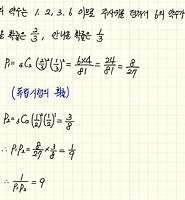 약수는 1, 2, 3, 6 이므로 주사위를 던져서 6의 약수가
확률은 2/3, 안 나올 확률은 1/3
P₁ = ₄C₂ (2/3)² (1/3)² = 6×4/81 = 24/81 = 8/27
(독립시행의 확률)
P₂ = ₄C₂ (1/2)² (1/2)² = 3/8
∴ P₁P₂ = 8/27 × 3/8 = 1/9
∴ 1/P₁P₂ = 9